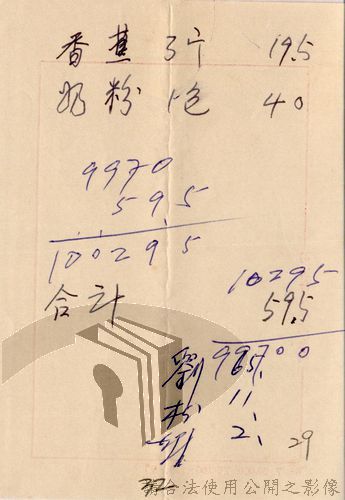 香蕉 3斤 19.5
奶粉 1包 40
9970
595
100295
合計
10295
59.5
劉
11
2
29
合法使用公開之影像